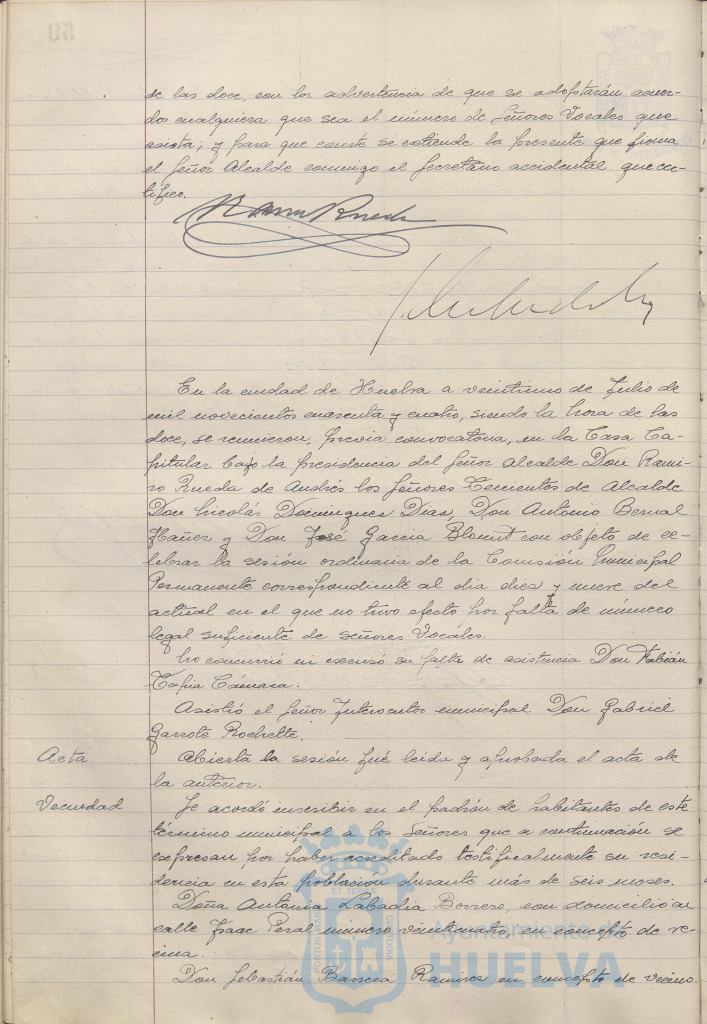 de las doce, con la advertencia de que se adoptarán acuer-
dos cualquiera que sea el número de Señores Vocales que
asista; y para que conste se extiende la presente que firma
el Señor Alcalde conmigo el Secretario accidental que cer-
tifico.
En la ciudad de Huelva a veintiuno de Julio de
mil novecientos cuarenta y cuatro, siendo la hora de las
doce, se reunieron, previa convocatoria, en la Casa Ca-
pitular bajo la presidencia del Señor Alcalde Don Rami-
ro Rueda de Andrés los Señores Tenientes de Alcalde
Don Nicolás Dominguez Dias, Don Antonio Bernal
Ibañez y Don José Garcia Blount con objeto de ce-
lebrar la sesión ordinaria de la Comisión Municipal
Permanente correspondiente al dia diez y nueve del
actual en el que no tuvo efecto por falta de número
legal suficiente de señores Vocales.
No concurrió ni excusó su falta de asistencia Don Fabián
Tapia Cámara.
Asistió el Señor Interventor municipal Don Gabriel
Garrote Rochette.
Acta
Abierta la sesión fué leida y aprobada el acta de
la anterior.
Vecindad
Se acordó inscribir en el padrón de habitantes de este
término municipal a los Señores que a continuación se
expresan por haber acreditado testificalmente su resi-
dencia en esta población durante más de seis meses.
Doña Antonia Labadia Borrero, con domicilio en
calle Isaac Peral número veinticuatro en concepto de ve-
cina.
Don Sebastián Barrera Ramirez en concepto de vecino.
Ayuntamiento de
HUELVA